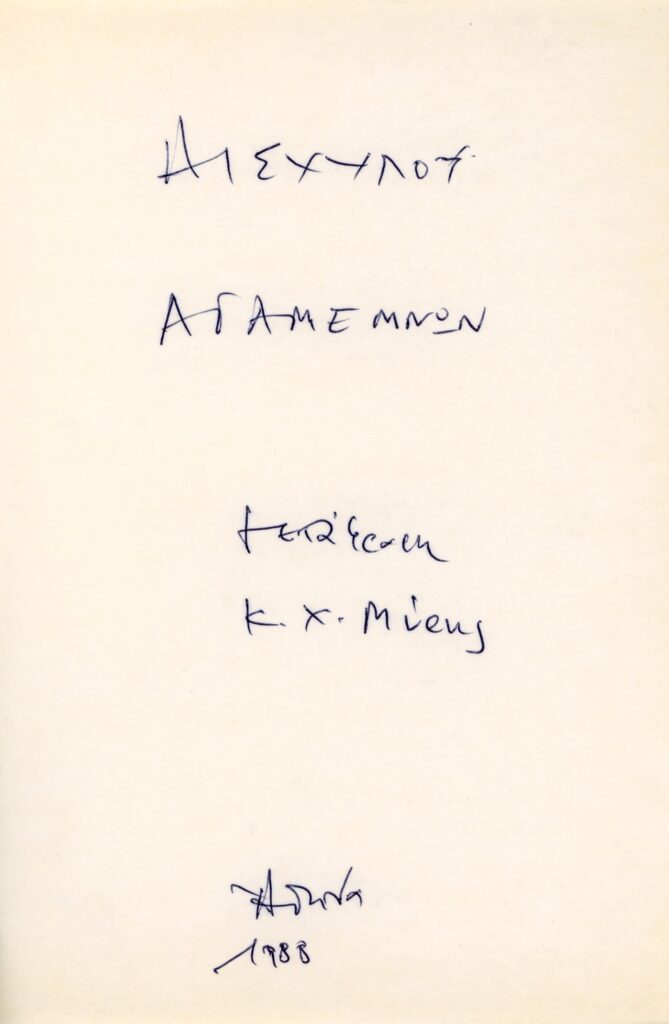 ΑΙΣΧΥΛΟΥ
ΑΓΑΜΕΜΝΩΝ
μετάφραση
Κ. Χ. Μύρης
Αθήνα
1988